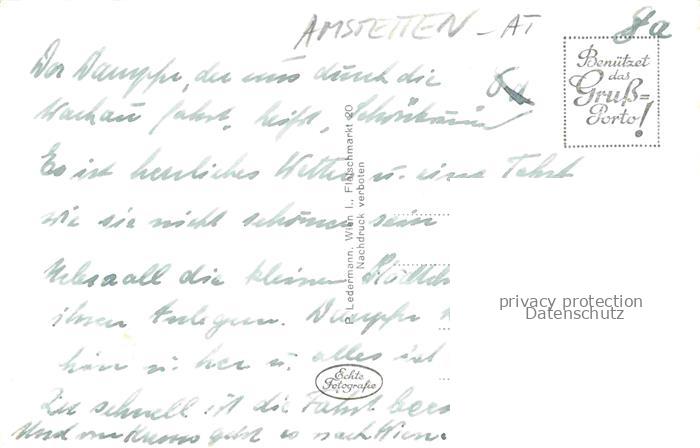 AMSTETTEN - AT
8a
Der Dampfer, der uns durch die
Wachau fährt, heißt, Schönbrunn
Es ist herrliches Wetter u. eine Fahrt
wie sie nicht schöner sein
Ueberall die kleinen
ihren Anlegen. Dampfer
hin u. her u. alles ist
Zu schnell ist die Fahrt
Und von Krems geht es nach Wien.
Benützet
das
Gruß=
Porto!
P. Ledermann, Wien I., Fleischmarkt 20
Nachdruck verboten
Echte
Fotografie
privacy protection
Datenschutz